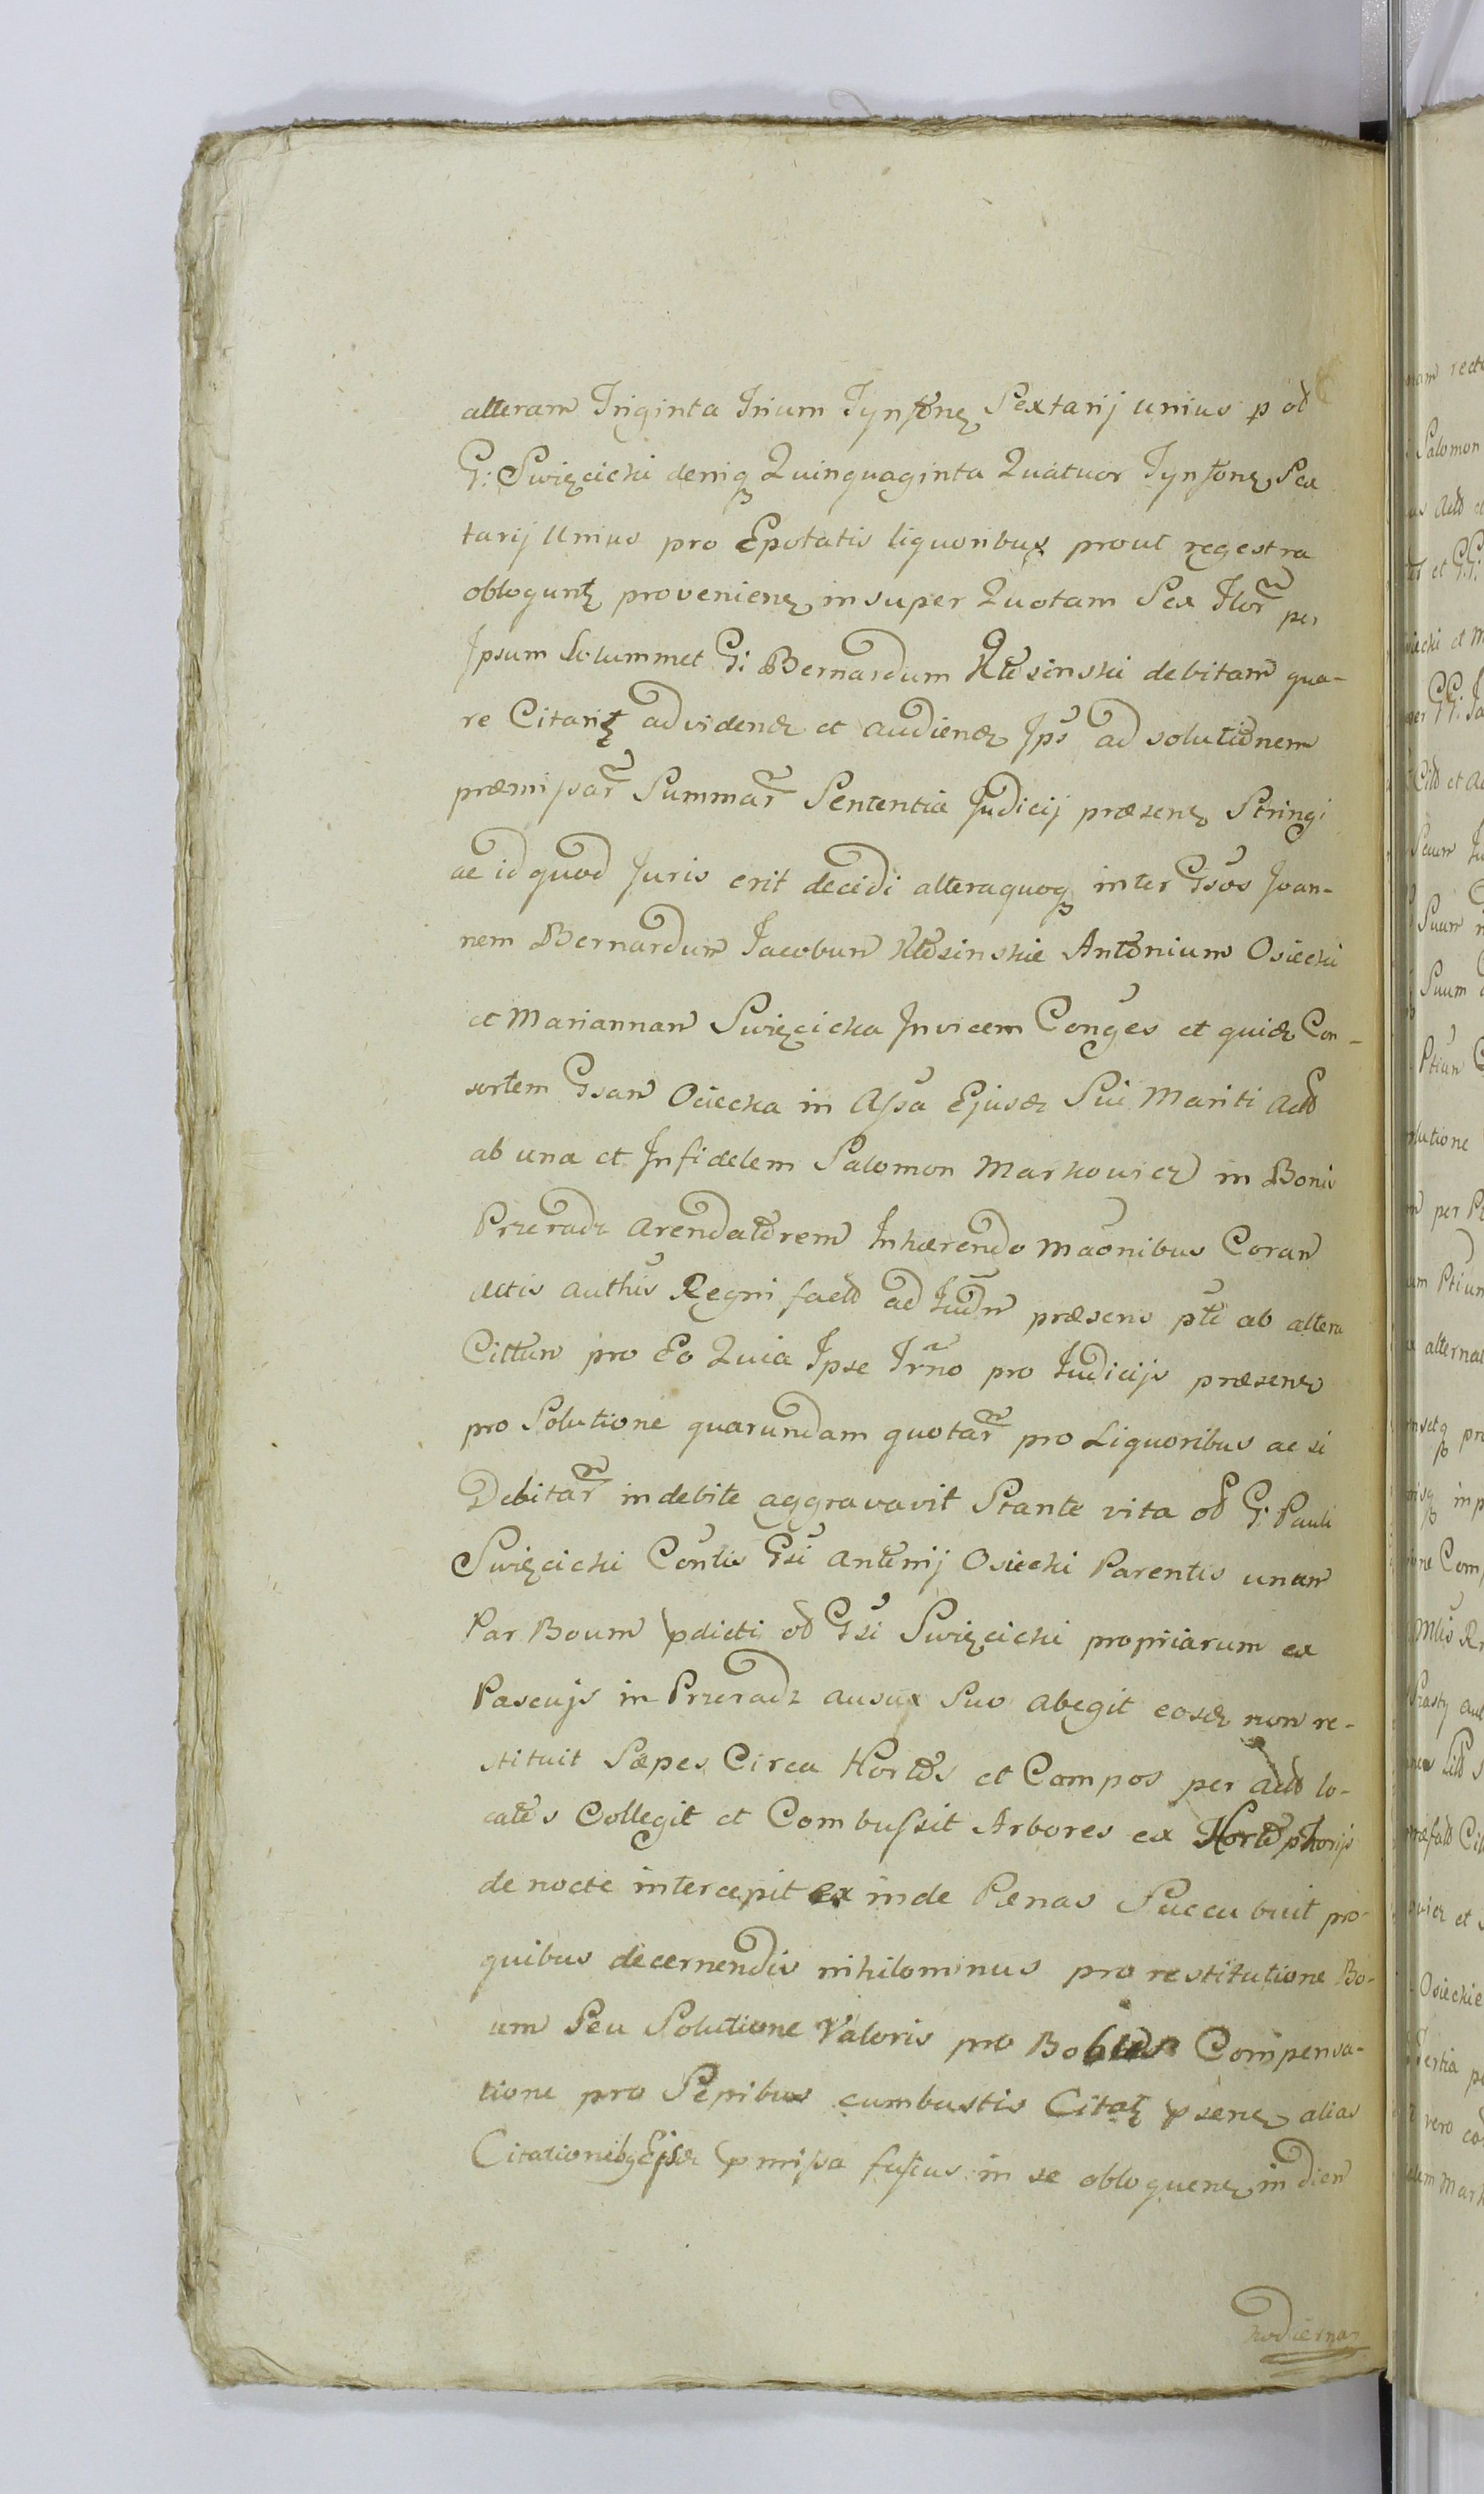 alteram Triginta Trium Tynfone Sextarij unius p od
G: Swięcicki deniq Quinquaginta Quatuor Tynfone, Sex
tarij Unius pro Epotatis liquoribus prout regestra
obloqunt proveniene, insuper Quotam Sex Flor per
Ipsum Solummet G: Bernardum Kłosinski debitam qua-
re Citarit ad videnđ et audienđ Ips ad solutionem
præmissar Summar Sententia Judicij præsene Stringi
ac id quod Juris erit decidi altera quoq inter Gsos Joan-
nem Bernardum Jacobum Kłosinskie Antonium Osiecki
et Mariannam Swięcicka Invicem Conges et quid Con-
sortem Gsam Osiecka in Assa Ejusd Sui Mariti Acto
ab una et Infidelem Salomon Markowicz in Bonis
Przeradz Arendatorem Inhærendo Maonibus Coram
Actis Auths Regni facto ad Judm præsens pti ab altera
Cittum pro Eo Quia Ipse Trno pro Judicijs præsene
pro Solutione quarundam quotar pro Liquoribus ac si
Debitar indebite aggravavit Stante vita od G: Pauli
Swięcicki Contis Gsi Antonij Osiecki Parentis unam
Par Boum pdicti od Gsi Swięcicki propriarum ex
Pascujs in Przeradz ausux Suo abegit eosd non re-
stituit Sæpes Circa Hortos et Campos per Acto lo-
catos Collegit et Combussit Arbores ex Horto
de nocte intercepit ex inde Pænas Succubuit pro
quibus decernendis nihilominus pro restitutione Bo-
um Seu Solutione Valoris pro Bobus Compensa-
tione pro Sepibus cumbustis Citat psene alias
Citationibq Ejsd pmissa fusius in se obloquene, in diem
hodiernam